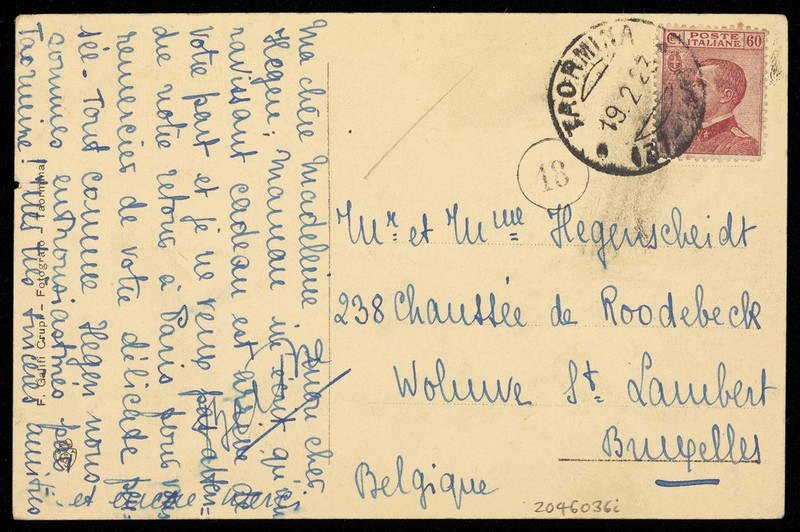 Ma chère Madeleine, mon cher
Hegen; Maman m'écrit qu'un
ravissant cadeau est arrivé de
votre part et je ne veux pas atten=
dre notre retour à Paris pour vous
remercier de votre délicate pen=
sée. Tout comme Hegen nous
sommes enthousiasmés par
Taormine! Mes très sincères amitiés
et encore merci
F. Galifi Crupi - Fotografo - Taormina
POSTE
ITALIANE
60
TAORMINA
19.2.23
18
Mr. et Mme Hegenscheidt
238 Chaussée de Roodebeck
Woluwe St. Lambert
Bruxelles
Belgique
2046036i